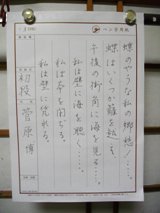 蝶のやうな私の郷愁!…
蝶はいくつか籬を越え、
午後の街角に海を見る…。
私は壁に海を聴く…。
私は本を閉ぢる。
私は壁に凭れる。
初段 菅原 博